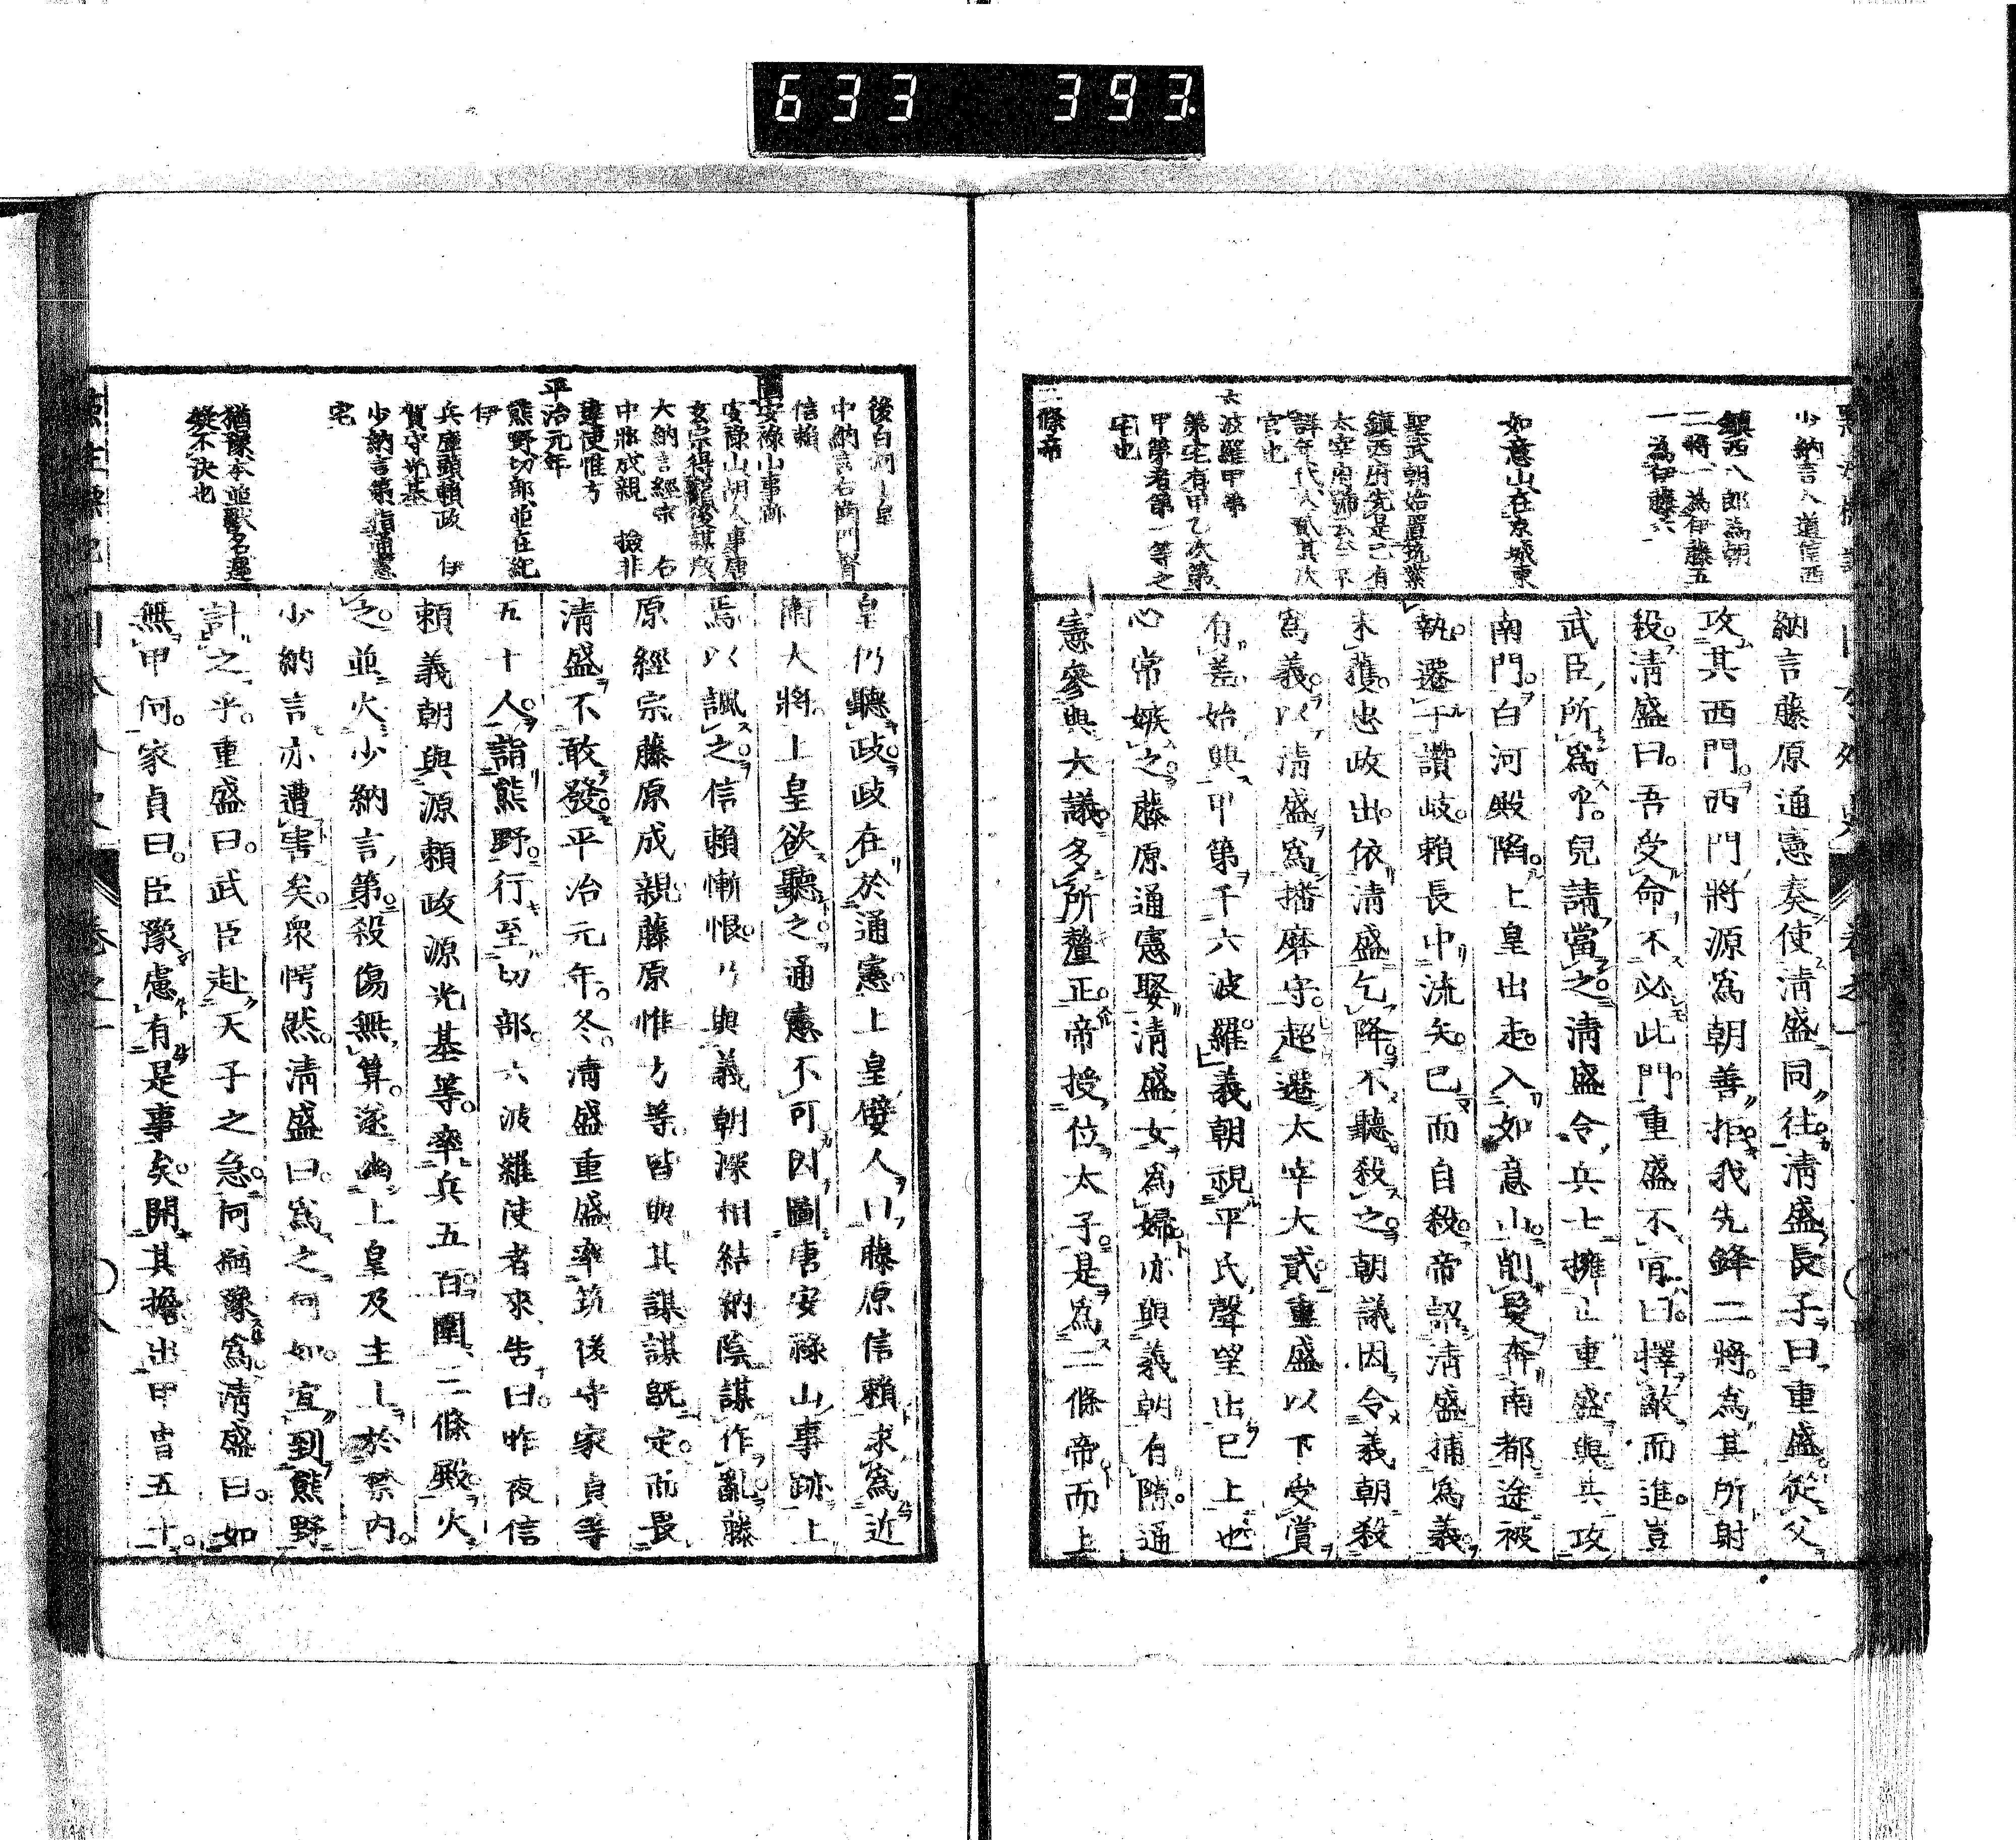 633 393.
少納言入道信西
鎮西八郎為朝
二將一為伊藤五
一為伊藤六
如意山在京城東
聖武朝始置筑紫
鎮西府先是已有
太宰府號云云不
詳年代大貳其次
官也
六波羅甲第
第宅有甲乙次第
甲第者第一等之
宅也
二條帝
納言藤原通憲奏使淸盛同往淸盛長子曰重盛從父
攻其西門西門將源爲朝善拒我先鋒二將爲其所射
殺淸盛曰吾受命不必此門重盛不肯曰擇敵而進豈
武臣所爲乎兒請當之淸盛令兵士擁止重盛與其攻
南門白河殿陷上皇出走入如意山削髮奔南都途被
執遷于讚岐賴長中流矢已而自殺帝詔淸盛捕爲義
未獲忠政出依淸盛乞降不聽殺之朝議因令義朝殺
爲義以淸盛爲播磨守超遷太宰大貳重盛以下受賞
有差始興甲第于六波羅義朝視平氏聲望出已上也
心常嫉之藤原通憲娶淸盛女爲婦亦與義朝有隙通
憲參與大議多所釐正帝授位太子是爲二條帝而上
後白河上皇
中納言右衞門督
信賴
安祿山事跡
安祿山胡人事唐
玄宗得寵後謀反
大納言經宗 右
中將成親 撿非
違使惟方
平治元年
熊野切部並在紀
伊
兵庫頭賴政 伊
賀守光基
少納言第指通憲
宅
猶豫本並獸名遲
疑不決也
皇仍聽政政在於通憲上皇嬖人曰藤原信賴求爲近
衞大將上皇欲聽之通憲不可因圖唐安祿山事跡上
焉以諷之信賴慚恨乃與義朝深相結納陰謀作亂藤
原經宗藤原成親藤原惟方等皆與其謀謀旣定而畏
淸盛不敢發平治元年冬淸盛重盛率筑後守家貞等
五十人詣熊野行至切部六波羅使者來告曰昨夜信
賴義朝與源賴政源光基等率兵五百圍二條殿火
之並火少納言第殺傷無算遂幽上皇及主上於禁內
少納言亦遭害矣衆愕然淸盛曰爲之何如宜到熊野
計之乎重盛曰武臣赴天子之急何猶豫爲淸盛曰如
無甲何家貞曰臣豫慮有是事矣開其擔出甲冑五十